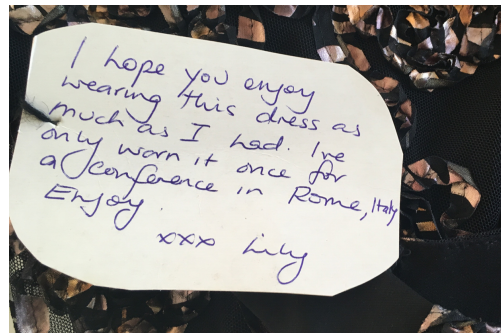 I hope you enjoy
wearing this dress as
much as I had. I've
only worn it once for
a conference in Rome, Italy
Enjoy.
xxx Lily